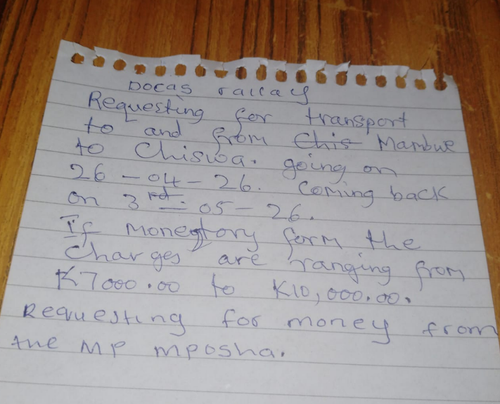 DOCAS rallay
Requesting for transport
to and from Chis Mambwe
to Chiswa. going on
26 - 04 - 26. Coming back
on 3rd - 05 - 26.
If monetory form the
Charges are ranging from
K7000.00 to K10,000.00.
Requesting for money from
the MP mposha.